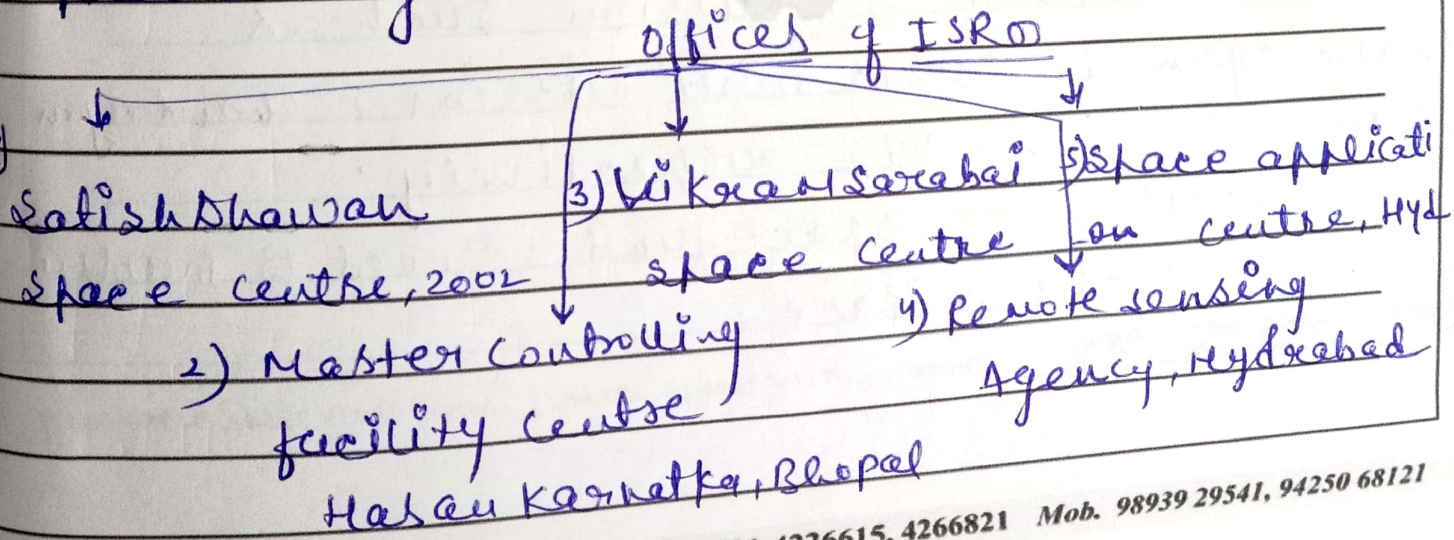 Offices of ISRO
Satish Dhawan
space centre, 2002
2) Master Controlling
facility centre
Hasan Karnatka, Bhopal
3) Vikram Sarabai
space centre
4) Remote sensing
Agency, Hydrabad
5) Space applicati
on centre, Hyd
4266821 Mob. 98939 29541, 94250 68121